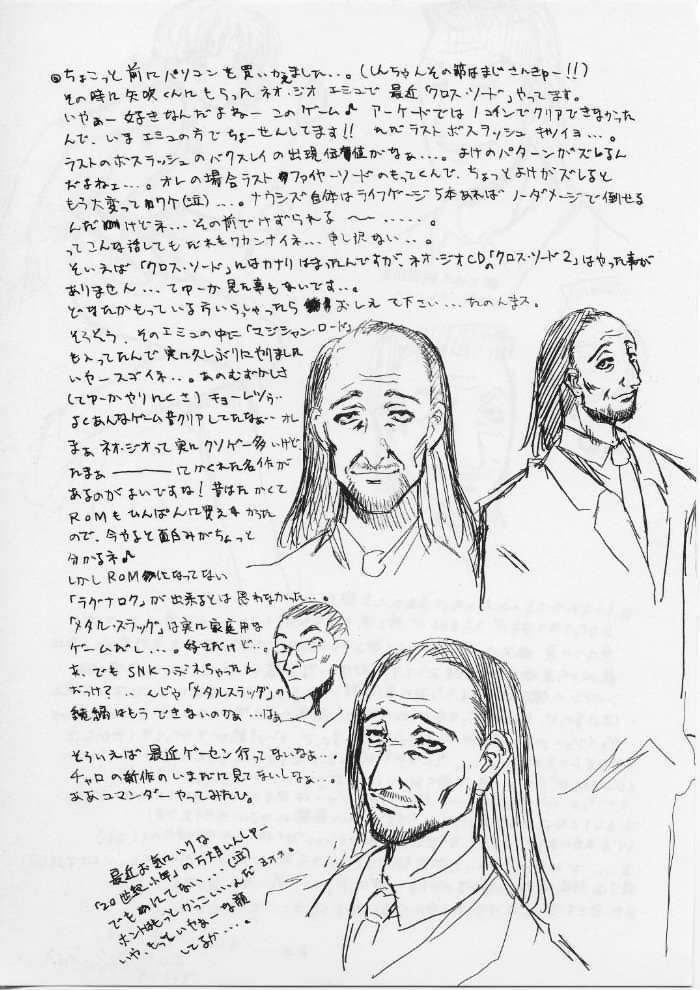 ◎ちょこっと前にパソコンを買いかえました…。(しんちゃんその節はまじさんきゅー!!)
その時に矢吹くんにもらったネオ・ジオエミュで最近「クロス・ソード」やってます。
いやぁー好きなんだよねーこのゲーム♪ アーケードでは1コインでクリアできなかった
んで、いまエミュの方でちょーせんしてます!! ただラストボスラッシュキツイヨ…。
ラストのボスラッシュのバクスレイの出現位置がなぁ…。よけのパターンがズレるん
だよねェ…。オレの場合ラストファイヤーソードのもってくんで、ちょっとよけがズレると
もう大変ってワケ(泣)…。ナウシズ自体はライフゲージ5本あればノーダメージで倒せる
んだけどネ…その前でけずられる〜……。
ってこんな話してもだれもワカンナイネ…申し訳ない…。
そいえば「クロス・ソード」にはカナリはまったんですが、ネオ・ジオCDの「クロス・ソード2」はやった事が
ありません…てゆーか見た事もないです…。
どなたかもっている方いらっしゃったらおしえて下さい…たのんまス。
そうそう、そのエミュの中に「マジシャン・ロード」
も入ってたんで実に久しぶりにやりました
いやースゴイネ…。あのむずかしさ
(てゆーかやりにくさ)キョーレツぅ…
よくあんなゲーム昔クリアしてたなぁ…オレ
まぁネオ・ジオって実にクソゲー多いけど
たまぁーーーにかくれた名作が
あるのがよいですね!昔はたかくて
ROMもひんぱんに買えなかった
ので、今やると面白みがちょっと
分かるネ♪
しかしROMになってない
「ラグナロク」が出来るとは思わなかった…。
「メタル・スラッグ」は実に家庭用な
ゲームだし…。好きだけど…。
あ、でもSNKつぶれちゃったん
だっけ?…んじゃ「メタルスラッグ」の
続編はもうできないのかぁ…はぁ
そういえば最近ゲーセン行ってないなぁ…。
チャロの新作のいまだに見てないしなぁ…。
ああコマンダーやってみたひ。
最近お気にいりな
「20世紀少年」の万丈目しんしサー
でもにてない…(泣)
ホントはもっとかっこいいんだヨオォ。
いや、もっといやぁーな顔
してるか…。